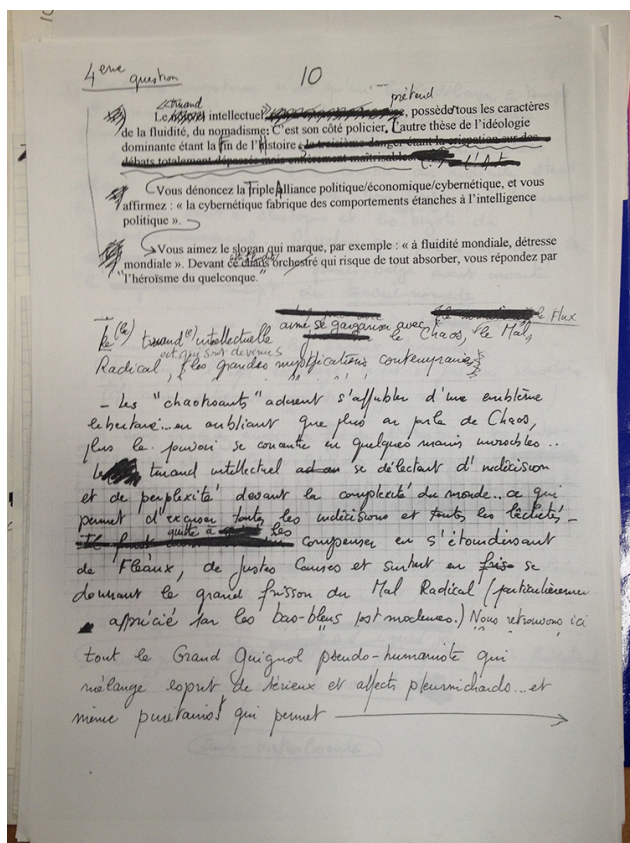 4eme question
10
truand prétend
Le intellectuel, possède tous les caractères
de la fluidité, du nomadisme. C'est son côté policier. L'autre thèse de l'idéologie
dominante étant la Fin de l'Histoire ; la treizième danger étant la crispation sur des
débats totalement dépassés mais entièrement maîtrisables
Vous dénoncez la Triple Alliance politique/économique/cybernétique, et vous
affirmez : « la cybernétique fabrique des comportements étanches à l'intelligence
politique ».
Vous aimez le slogan qui marque, par exemple : « à fluidité mondiale, détresse
mondiale ». Devant ce chaos orchestré qui risque de tout absorber, vous répondez par
"l'héroïsme du quelconque."
le Flux
le (la) truand(e) intellectuelle aime se gargariser avec le Chaos, le Mal
Radical, et qui sont devenus les grandes mystifications contemporaines
- Les "chaotisants" adorent s'affubler d'un emblème
libertaire... en oubliant que plus on parle de Chaos,
plus le pouvoir se concentre en quelques mains invisibles..
Le truand intellectuel se délectant d'indécision
et de perplexité devant la complexité du monde.. ce qui
permet d'excuser toutes les indécisions et toutes les lâchetés -
quitte à les compenser en s'étourdissant
de Fléaux, de Justes Causes et surtout en se
donnant le grand frisson du Mal Radical (particulièrement
apprécié par les bas-bleus post modernes.) Nous retrouvons ici
tout le Grand Guignol pseudo-humaniste qui
mélange esprit de sérieux et affects pleurnichards... et
même puritains qui permet